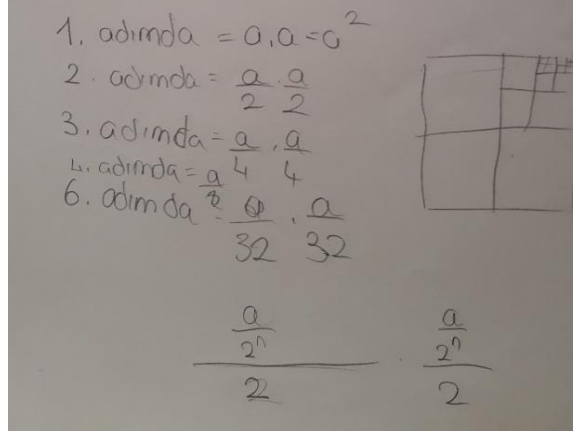 1. adımda = a.a = a²
2. adımda = a/2 . a/2
3. adımda = a/4 . a/4
4. adımda = a/8
6. adımda = a/32 . a/32
(a/2ⁿ)/2 . (a/2ⁿ)/2